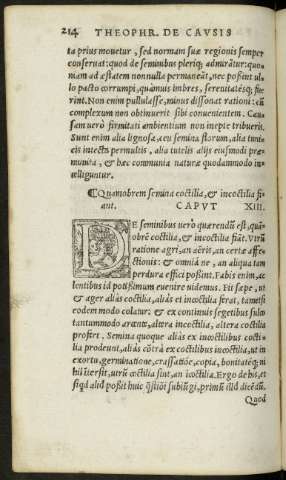 214 THEOPHR. DE CAVSIS
ta prius mouetur, sed normam suæ regionis semper
conseruat: quod de seminibus pleriq; admirãtur: quo-
niam ad æstatem nonnulla permaneãt, nec possint ul-
lo pacto corrumpi, quãmuis imbres, serenitatésq; fue-
rint. Non enim pullulasse, minus dissonat rationi: cũ
complexum non obtinuerit sibi conuenientem. Cau-
sam uerò firmitati ambientium non ineptè tribueris.
Sunt enim alia lignosa, ceu semina florum, alia tuni-
cis intecta permultis, alia tutelis alijs eiusmodi præ-
munita, & hæc communia naturæ quodammodo in-
telliguntur.
¶ Quamobrem semina coctilia, & incoctilia fi-
ant. CAPVT XIII.
DE seminibus uerò quærendũ est, quã-
obrẽ coctilia, & incoctilia fiãt. Vtrũ
ratione agri, an aëris, an certæ affe-
ctionis: & omnid ne, an aliqua tam
perdura effici possint. Fabis enim, ac
lentibus id potissimum euenire uidemus. Fit sæpe, ut
& ager aliàs coctilia, aliàs et incoctilia ferat, tametsi
eodem modo colatur: & ex continuis segetibus sulco
tantummodo aratus, altera incoctilia, altera coctilia
profert. Semina quoque aliàs ex incoctilibus cocti-
lia prodeunt, aliàs cõtrà ex coctilibus incoctilia, ut in
exortu, germinatione, crassatiõe, copia, bonitatéq; ni
hil itersit, utrũ coctilia sint, an icoctilia. Ergo de his, et
siqd aliud possit huic q̃stiõi subiũgi, primũ illd dicẽdũ.
Quod